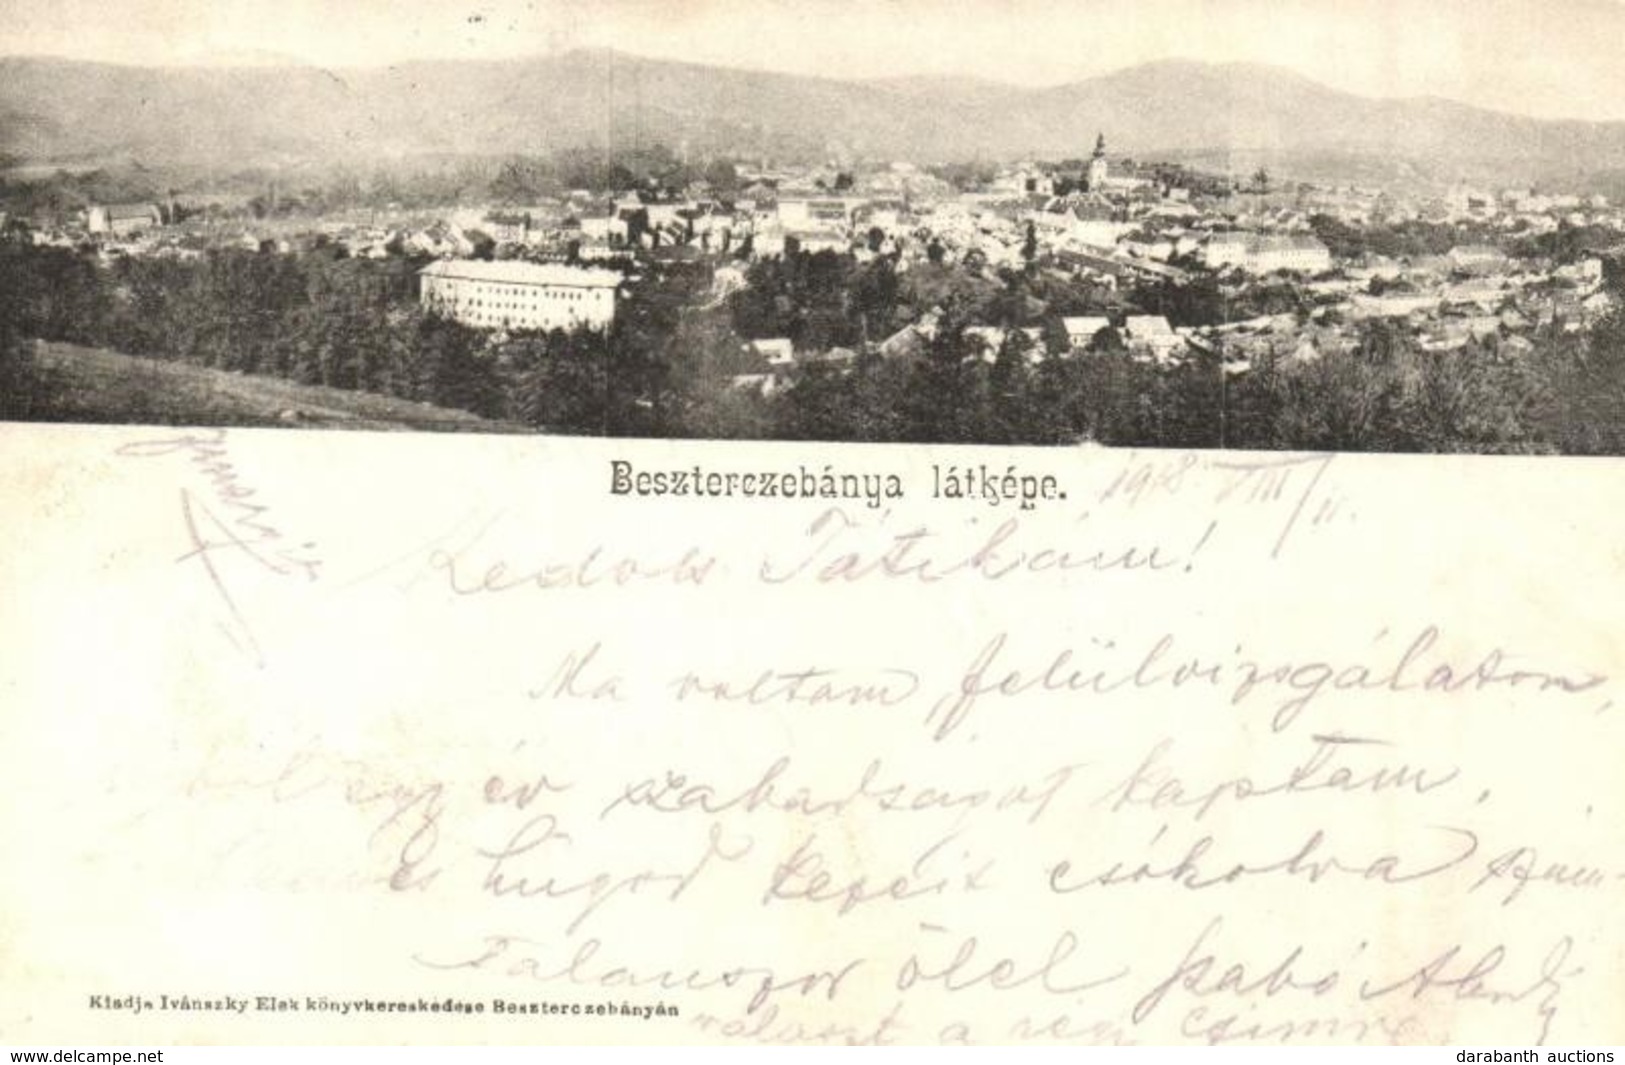 Beszterczebánya látképe.
1918 VIII/11.
Kedves Tátikám!
Ma voltam felülvizsgálaton,
egy év szabadságot kaptam.
hugod kezeit csókolva szám-
talanszor ölel Szabó
választ a régi címre
Kiadja Ivánszky Elek könyvkereskedése Beszterczebányán
www.delcampe.net
darabanth auctions